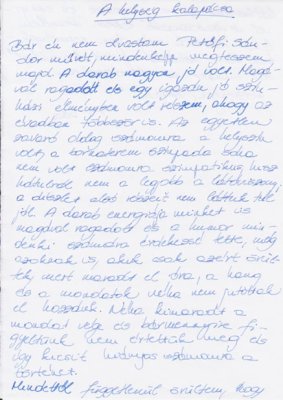 A helység kalapácsa
Bár én nem olvastam Petőfi Sán-
dor művét, mindenképp megteszem
majd. A darab nagyon jó volt. Magá-
val ragadott és egy igazán jó szín-
házi élményben volt részem, ahogy az
elvadban többször is. Az egyetlen
zavaró dolog számomra a helyszín
volt, a tornaterem színpada soha
nem volt számomra szimpatikus, hisz
hátulról nem a legjobb a látóviszony,
a díszlet alsó részeit nem láttuk túl
jól. A darab energiája minket is
magával ragadott és a humor min-
denki számára érdekessé tette, még
azoknak is, akik csak azért örül-
tek, mert maradt el óra, a hang
és a mondatok néha nem jutottak
el hozzánk. Néha kimaradt a
mondat vége és bármennyire fi-
gyeltünk nem értettük meg és
így kicsit hiányos számomra a
történet.
Mindettől függetlenül örültem, hogy